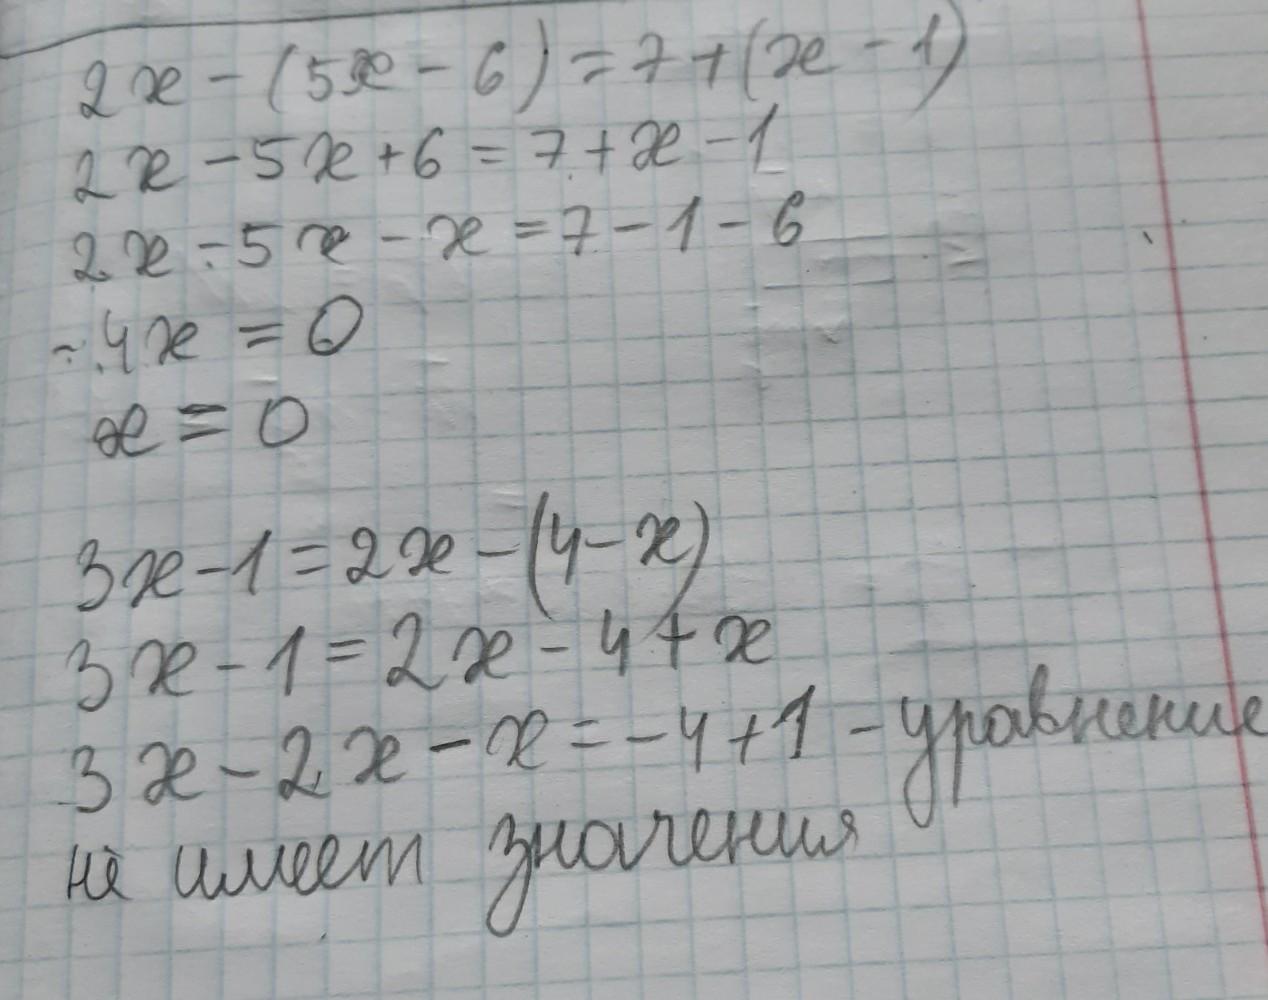 2x - (5x - 6) = 7 + (x - 1)
2x - 5x + 6 = 7 + x - 1
2x - 5x - x = 7 - 1 - 6
- 4x = 0
x = 0
3x - 1 = 2x - (4 - x)
3x - 1 = 2x - 4 + x
3x - 2x - x = - 4 + 1 - уравнение
не имеет значения